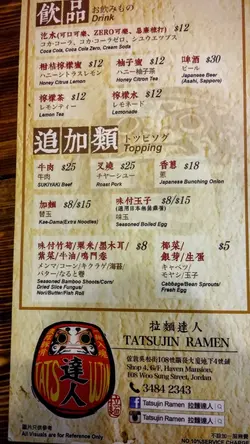 飲品 お飲みもの
Drink
汽水(可口可樂、ZERO可樂、忌廉梳打) $12
コカ・コーラ、コカ・コーラゼロ、シュウエップス
Coca Cola, Coca Cola Zero, Cream Soda
柑桔檸檬蜜 $12
ハニーシトラスレモン
Honey Citrus Lemon
柚子蜜 $12
ハニー柚子茶
Honey Citron Tea
啤酒 $30
ビール
Japanese Beer
(Asahi, Sapporo)
檸檬茶 $12
レモンティー
Lemon Tea
檸檬水 $12
レモネード
Lemonade
追加類 トッピング
Topping
牛肉 $25
牛肉
SUKIYAKI Beef
叉燒 $25
チャーシュー
Roast Pork
香蔥 $18
葱
Japanese Bunching Onion
加麵 $8/$15
替玉
Kae-Dama(Extra Noodles)
味付玉子 $8/$15
味玉
Seasoned Boiled Egg
味付竹筍/粟米/墨木耳/ $8
紫菜/牛油/鳴門卷
メンマ/コーン/キクラゲ/海苔/
バター/なると巻
Seasoned Bamboo Shoots/Corn/
Dried Slice Fungus/
Nori/Butter/Fish Roll
椰菜/ $5
銀芽/生蛋
キャベツ/
モヤシ/玉子
Cabbage/Bean Sprouts/
Fresh Egg
達人
拉麵達人
TATSUJIN RAMEN
Shop 4, G/F, Haven Mansion,
10S Woo Sung Street, Jordan
3484 2343
Tatsujin Ramen 拉麵達人
Tatsujin Ramen 拉麵達人
圖片只供參考
All Visuals are for Reference Only